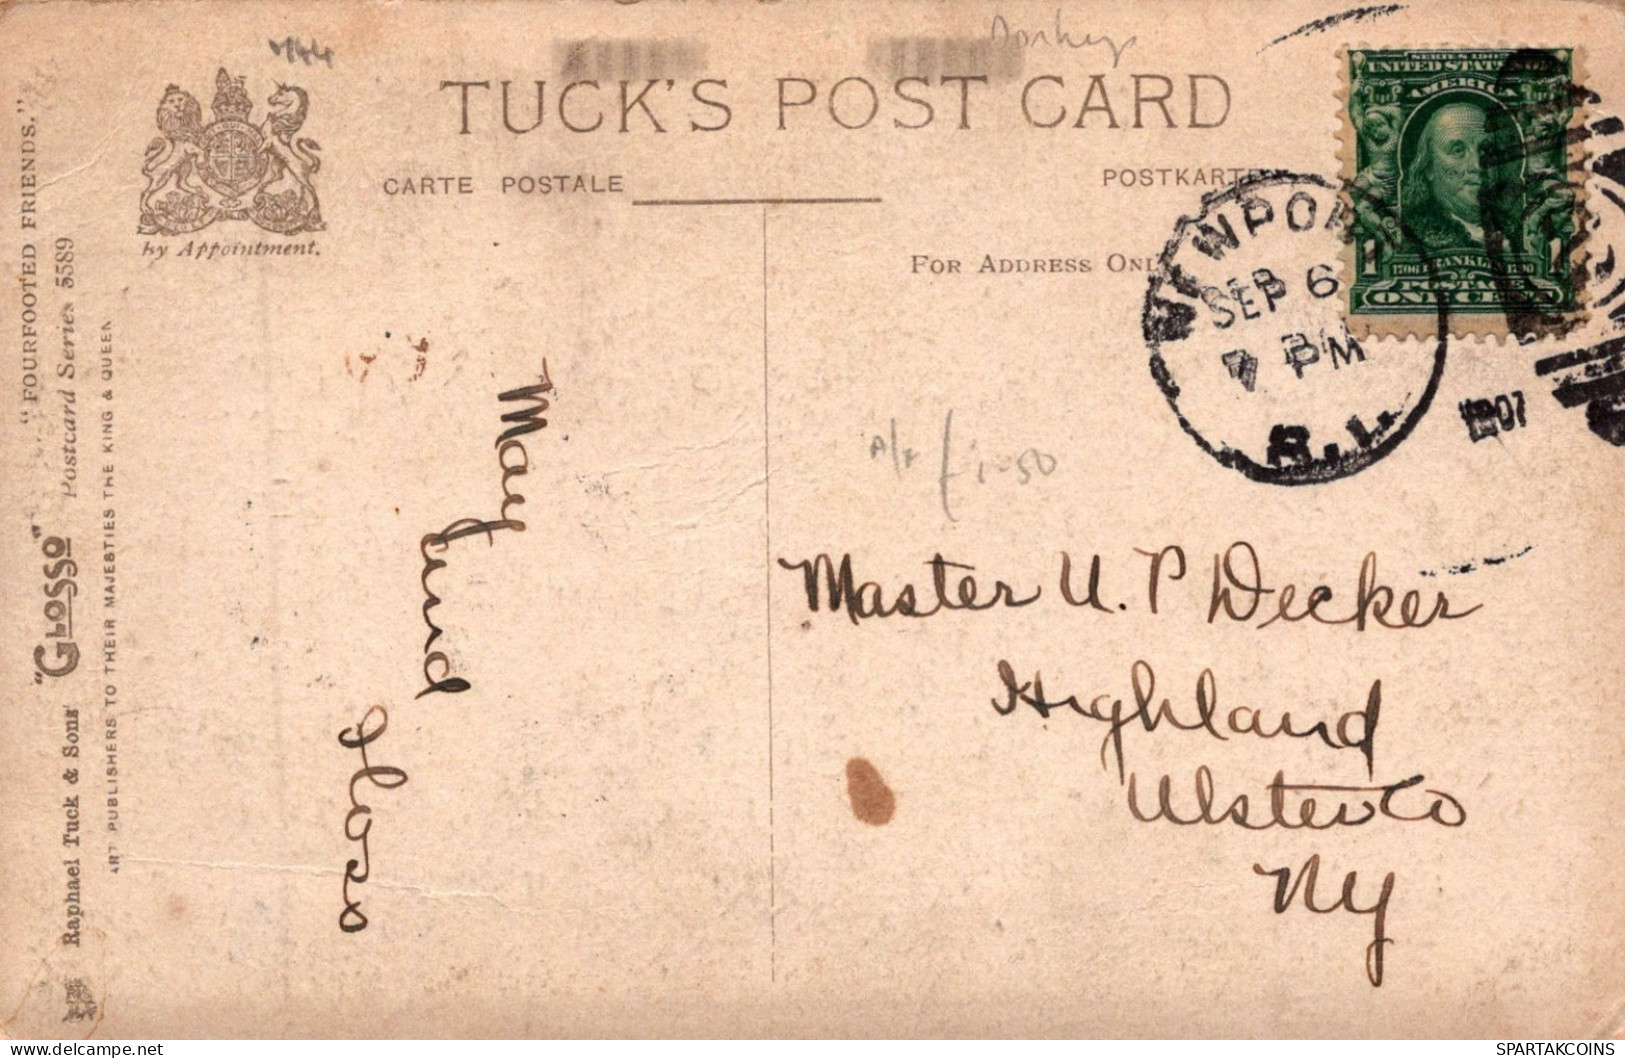 Donkeys
TUCK'S POST CARD
CARTE POSTALE
POSTKARTE
by Appointment.
FOR ADDRESS ONLY
NEWPORT
SEP 6
7 PM
R.I.
1907
SERIES 1902
UNITED STATES OF
AMERICA
1 1
1706 FRANKLIN 1790
POSTAGE
ONE CENT
£1-50
Master U. P Decker
Highland
Ulster Co
NY
May
and
"FOURFOOTED FRIENDS."
Raphael Tuck & Sons' "GLOSSO" Postcard Series 3589
ART PUBLISHERS TO THEIR MAJESTIES THE KING & QUEEN
SPARTAKCOINS
delcampe.net